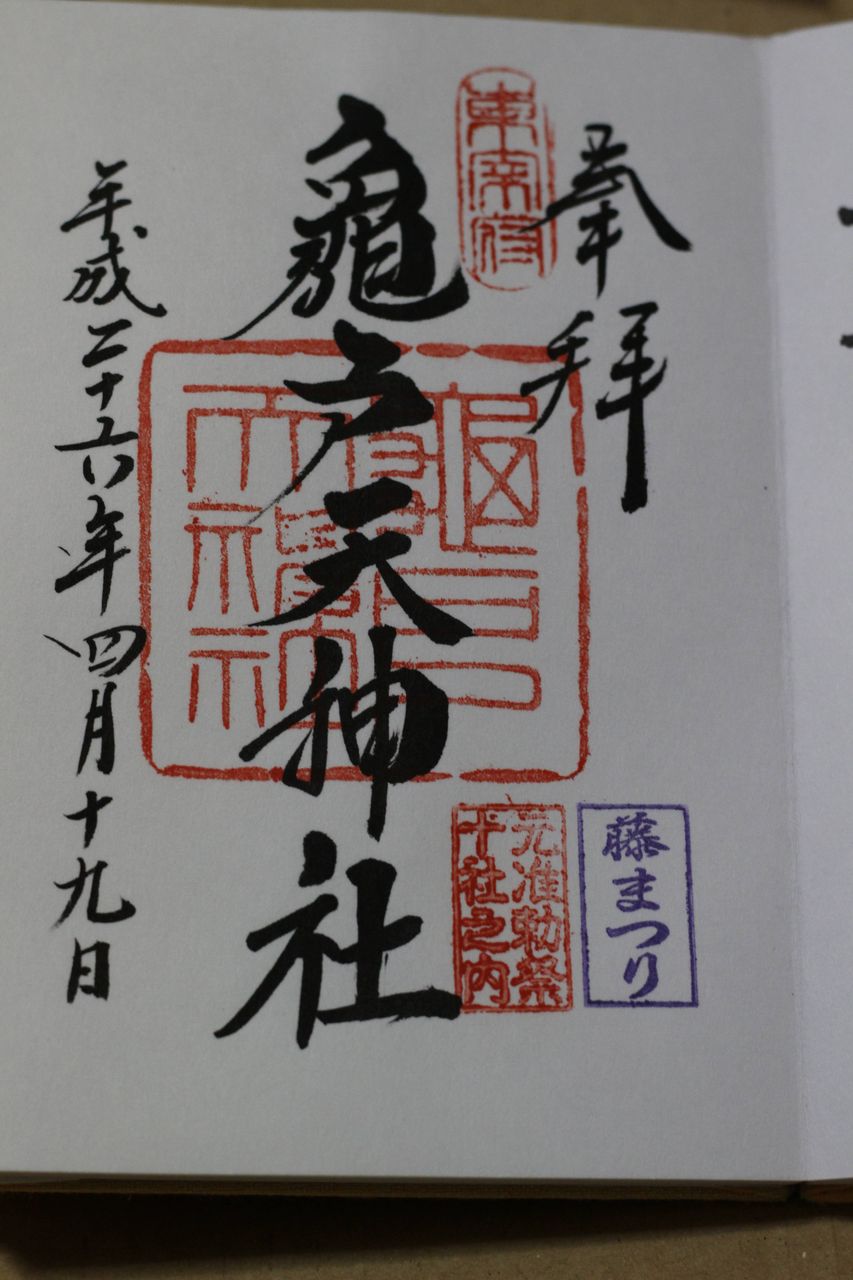 奉拝
東宰府
藤まつり
元准勅祭
十社之内
龜戸天神社
平成二十六年四月十九日